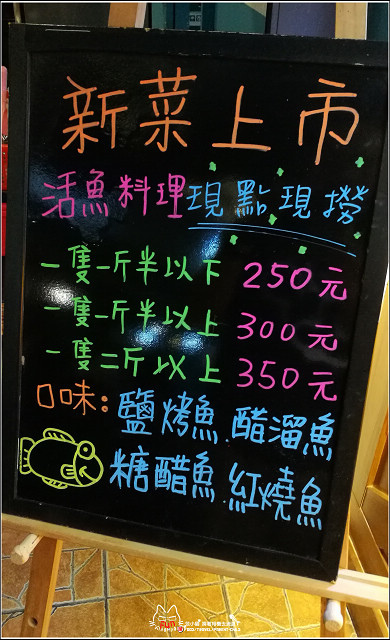 新菜上市
活魚料理現點現撈
一隻一斤半以下 250元
一隻一斤半以上 300元
一隻二斤以上 350元
口味:鹽烤魚.醋溜魚
糖醋魚.紅燒魚